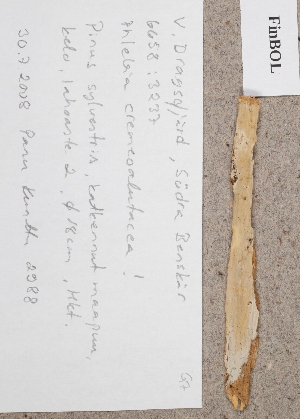 V. Dragsfjärd, Södra Benskär
6658:3237
Phlebia cremeoalutacea!
Pinus sylvestris, katkennut maapuu,
kelo, lahoaste 2, ø 18 cm, Hkt.
30.7.2008 Panu Kunttu 2988
FinBOL